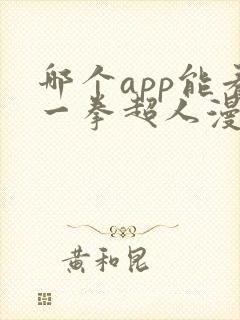 哪个app能看
一拳超人漫
黄和昆